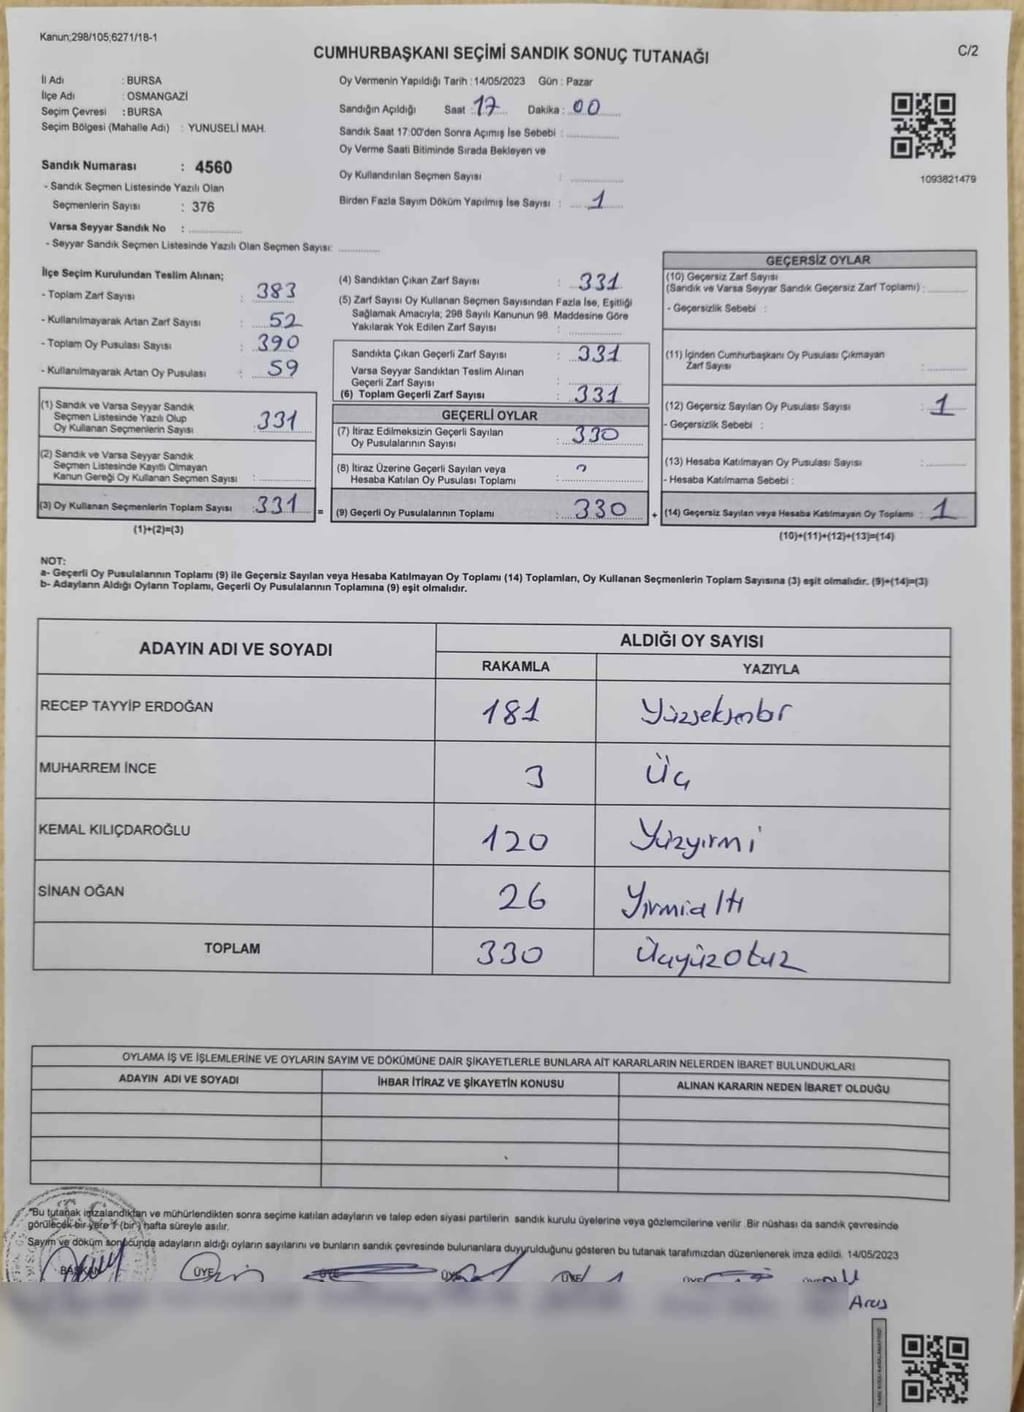 Kanun;298/105;6271/18-1
CUMHURBAŞKANI SEÇİMİ SANDIK SONUÇ TUTANAĞI
C/2
İl Adı : BURSA
İlçe Adı : OSMANGAZİ
Seçim Çevresi : BURSA
Seçim Bölgesi (Mahalle Adı) : YUNUSELİ MAH.
Oy Vermenin Yapıldığı Tarih :14/05/2023 Gün : Pazar
Sandığın Açıldığı Saat : 17 Dakika : 00
Sandık Saat 17:00'den Sonra Açımış İse Sebebi :
Oy Verme Saati Bitiminde Sırada Bekleyen ve
Oy Kullandırılan Seçmen Sayısı :
Birden Fazla Sayım Döküm Yapılmış İse Sayısı : 1
1093821479
Sandık Numarası : 4560
- Sandık Seçmen Listesinde Yazılı Olan
Seçmenlerin Sayısı : 376
Varsa Seyyar Sandık No :
- Seyyar Sandık Seçmen Listesinde Yazılı Olan Seçmen Sayısı:
İlçe Seçim Kurulundan Teslim Alınan;
- Toplam Zarf Sayısı : 383
- Kullanılmayarak Artan Zarf Sayısı : 52
- Toplam Oy Pusulası Sayısı : 390
- Kullanılmayarak Artan Oy Pusulası : 59
(1) Sandık ve Varsa Seyyar Sandık
Seçmen Listesinde Yazılı Olup
Oy Kullanan Seçmenlerin Sayısı : 331
(2) Sandık ve Varsa Seyyar Sandık
Seçmen Listesinde Kayıtlı Olmayan
Kanun Gereği Oy Kullanan Seçmen Sayısı :
(3) Oy Kullanan Seçmenlerin Toplam Sayısı : 331
(1)+(2)=(3)
(4) Sandıktan Çıkan Zarf Sayısı : 331
(5) Zarf Sayısı Oy Kullanan Seçmen Sayısından Fazla İse, Eşitliği
Sağlamak Amacıyla; 298 Sayılı Kanunun 98. Maddesine Göre
Yakılarak Yok Edilen Zarf Sayısı :
Sandıkta Çıkan Geçerli Zarf Sayısı : 331
Varsa Seyyar Sandıktan Teslim Alınan
Geçerli Zarf Sayısı :
(6) Toplam Geçerli Zarf Sayısı : 331
GEÇERLİ OYLAR
(7) İtiraz Edilmeksizin Geçerli Sayılan
Oy Pusulalarının Sayısı : 330
(8) İtiraz Üzerine Geçerli Sayılan veya
Hesaba Katılan Oy Pusulası Toplamı :
= (9) Geçerli Oy Pusulalarının Toplamı : 330
GEÇERSİZ OYLAR
(10) Geçersiz Zarf Sayısı
(Sandık ve Varsa Seyyar Sandık Geçersiz Zarf Toplamı) :
- Geçersizlik Sebebi :
(11) İçinden Cumhurbaşkanı Oy Pusulası Çıkmayan
Zarf Sayısı :
(12) Geçersiz Sayılan Oy Pusulası Sayısı : 1
- Geçersizlik Sebebi :
(13) Hesaba Katılmayan Oy Pusulası Sayısı :
- Hesaba Katılmama Sebebi :
+ (14) Geçersiz Sayılan veya Hesaba Katılmayan Oy Toplamı : 1
(10)+(11)+(12)+(13)=(14)
NOT:
a- Geçerli Oy Pusulalarının Toplamı (9) ile Geçersiz Sayılan veya Hesaba Katılmayan Oy Toplamı (14) Toplamları, Oy Kullanan Seçmenlerin Toplam Sayısına (3) eşit olmalıdır. (9)+(14)=(3)
b- Adayların Aldığı Oyların Toplamı, Geçerli Oy Pusulalarının Toplamına (9) eşit olmalıdır.
ADAYIN ADI VE SOYADI
ALDIĞI OY SAYISI
RAKAMLA YAZIYLA
RECEP TAYYİP ERDOĞAN 181 Yüzseksenbir
MUHARREM İNCE 3 Üç
KEMAL KILIÇDAROĞLU 120 Yüzyirmi
SİNAN OĞAN 26 Yirmialtı
TOPLAM 330 Üçyüzotuz
OYLAMA İŞ VE İŞLEMLERİNE VE OYLARIN SAYIM VE DÖKÜMÜNE DAİR ŞİKAYETLERLE BUNLARA AİT KARARLARIN NELERDEN İBARET BULUNDUKLARI
ADAYIN ADI VE SOYADI İHBAR İTİRAZ VE ŞİKAYETİN KONUSU ALINAN KARARIN NEDEN İBARET OLDUĞU
"Bu tutanak imzalandıktan ve mühürlendikten sonra seçime katılan adayların ve talep eden siyasi partilerin sandık kurulu üyelerine veya gözlemcilerine verilir. Bir nüshası da sandık çevresinde
görülecek bir yere 1 (bir) hafta süreyle asılır.
Sayım ve döküm sonucunda adayların aldığı oyların sayılarını ve bunların sandık çevresinde bulunanlara duyurulduğunu gösteren bu tutanak tarafımızdan düzenlenerek imza edildi. 14/05/2023
BAŞKAN ÜYE ÜYE ÜYE ÜYE